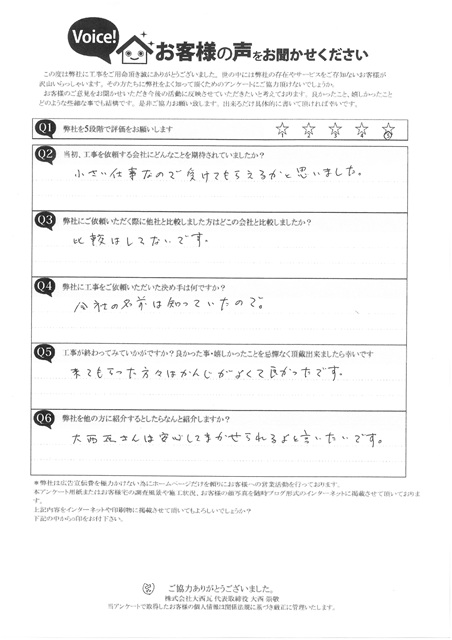 Voice!
お客様の声をお聞かせください
この度は弊社に工事をご用命頂き誠にありがとうございました。世の中には弊社の存在やサービスをご存知ないお客様が
沢山いらっしゃいます。その方たちに弊社をよく知って頂くためのアンケートにご協力頂けないでしょうか。
お客様のご意見をお聞かせいただき今後の活動に反映させていただきたいと考えております。良かったこと、嬉しかったこと
どのような些細な事でも結構です。是非ご協力お願い致します。出来るだけ具体的に書いて頂ければ幸いです。
Q1 弊社を5段階で評価をお願いします
1 2 3 4 5
Q2 当初、工事を依頼する会社にどんなことを期待されていましたか?
小さい仕事なので受けてもらえるかと思いました。
Q3 弊社にご依頼いただく際に他社と比較しました方はどこの会社と比較しましたか?
比較はしてないです。
Q4 弊社に工事をご依頼いただいた決め手は何ですか?
会社の名前は知っていたので。
Q5 工事が終わってみていかがですか?良かった事・嬉しかったことを忌憚なく頂戴出来ましたら幸いです
来てもらった方々はかんじがよくて良かったです。
Q6 弊社を他の方に紹介するとしたらなんと紹介しますか?
大西瓦さんは安心してまかせられるよと言いたいです。
※弊社は広告宣伝費を極力かけない為にホームページだけを頼りにお客様への営業活動を行っております。
本アンケート用紙またはお客様宅の調査風景や施工状況、お客様の顔写真を随時ブログ形式のインターネットに掲載させて頂いておりま
す。
上記内容をインターネットや印刷物に掲載させて頂いてもよろしいでしょうか?
下記の中から○印をお付下さい。
ご協力ありがとうございました。
株式会社大西瓦 代表取締役 大西
当アンケートで取得したお客様の個人情報は関係法規に基づき厳正に管理いたします。